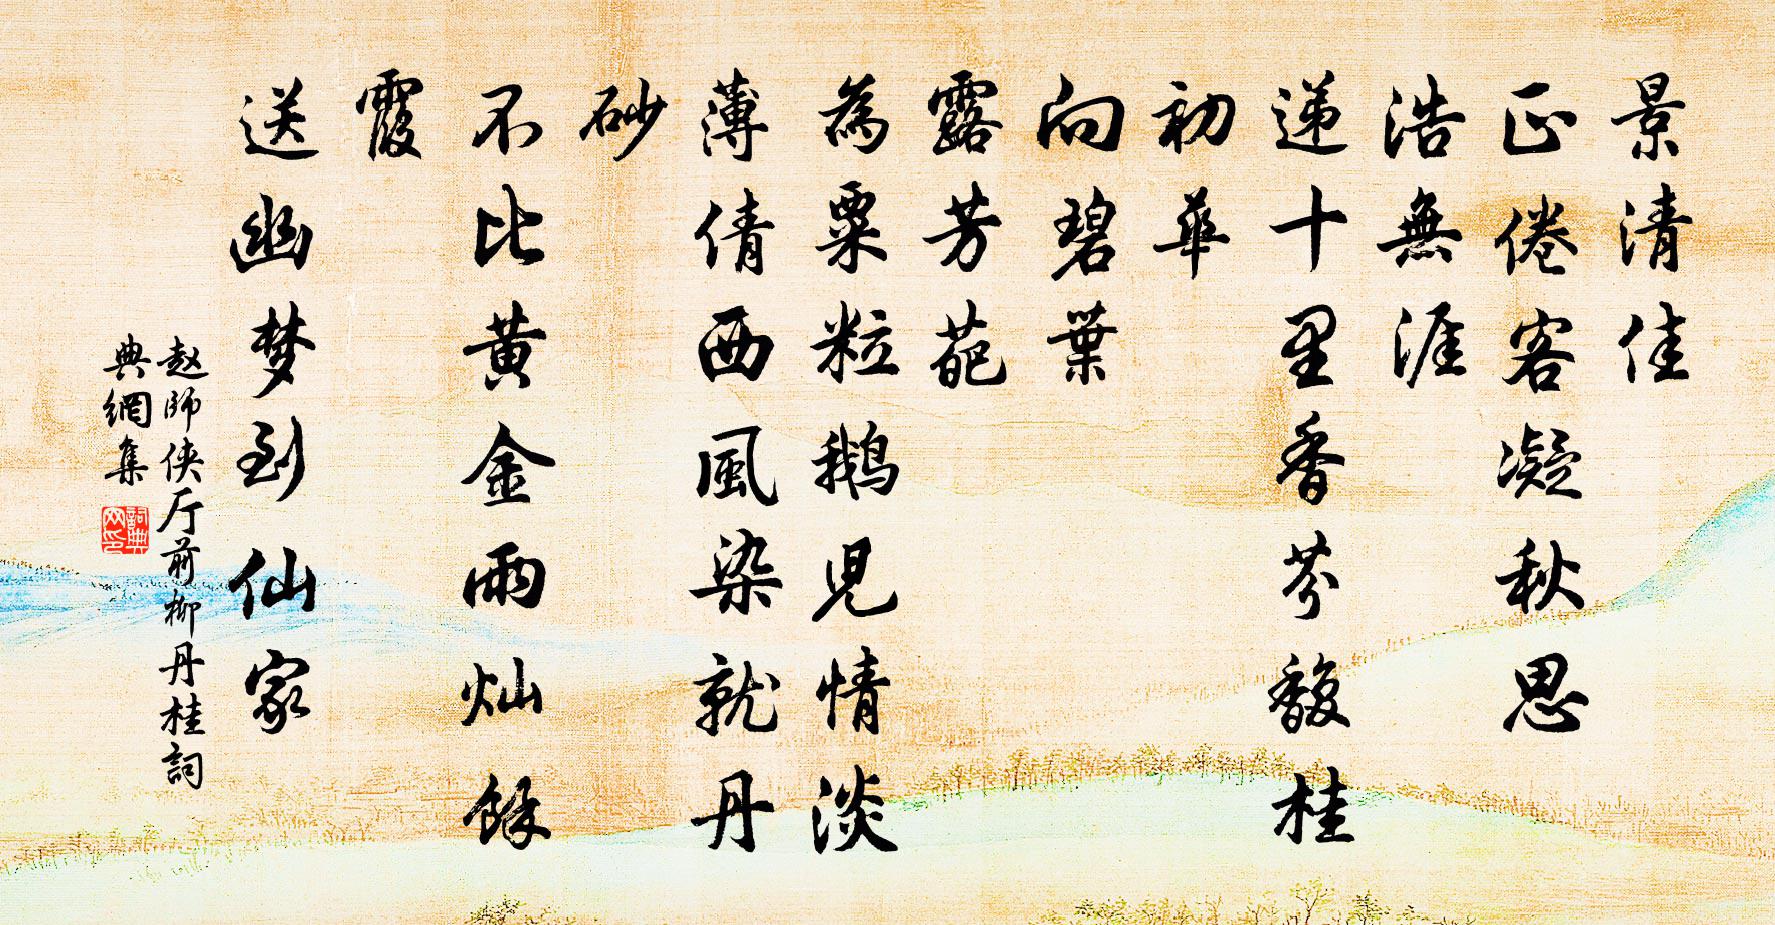 景清佳
正倦客凝秋思
浩無涯
递十里香芬馥桂
初華
向碧葉
露芳葩
為粟粒鵝児情淡
薄倩西風染就丹
砂
不比黄金雨灿餘
霞
送幽梦到仙家
赵師侠厅前柳丹桂詞
典網集
詞典网印